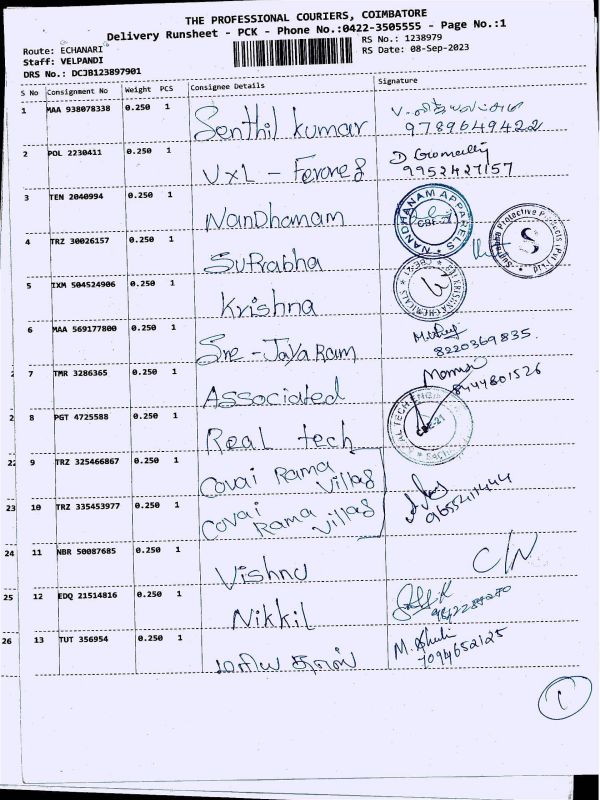 THE PROFESSIONAL COURIERS, COIMBATORE
Delivery Runsheet - PCK - Phone No.:0422-3505555 - Page No.:1
Route: ECHANARI
RS No.: 1238979
Staff: VELPANDI
RS Date: 08-Sep-2023
DRS No.: DCJB123897901
S No Consignment No Weight PCS Consignee Details Signature
1 MAA 938078338 0.250 1 Senthil kumar
9789649422
2 POL 2230411 0.250 1 VXL -
9952427157
3 TEN 2040994 0.250 1 NanDhanam
NANDHANAM APPARELS
4 TRZ 30026157 0.250 1 SuPrabha
Suprabha Protective Products (P) Ltd
S
5 IXM 504524906 0.250 1 Krishna
6 MAA 569177800 0.250 1 Sree - JayaRam
8220369835
2 7 TMR 3286365 0.250 1 Associated
8444801526
2 8 PGT 4725588 0.250 1 Real tech
CBE-21
22 9 TRZ 325466867 0.250 1 Covai Rama
Villas
23 10 TRZ 335453977 0.250 1 Covai Rama
Villas
9655211444
24 11 NBR 50087685 0.250 1 Vishnu
C/N
25 12 EDQ 21514816 0.250 1 Nikkil
26 13 TUT 356954 0.250 1 மரிய தாஸ்
7094652125
1